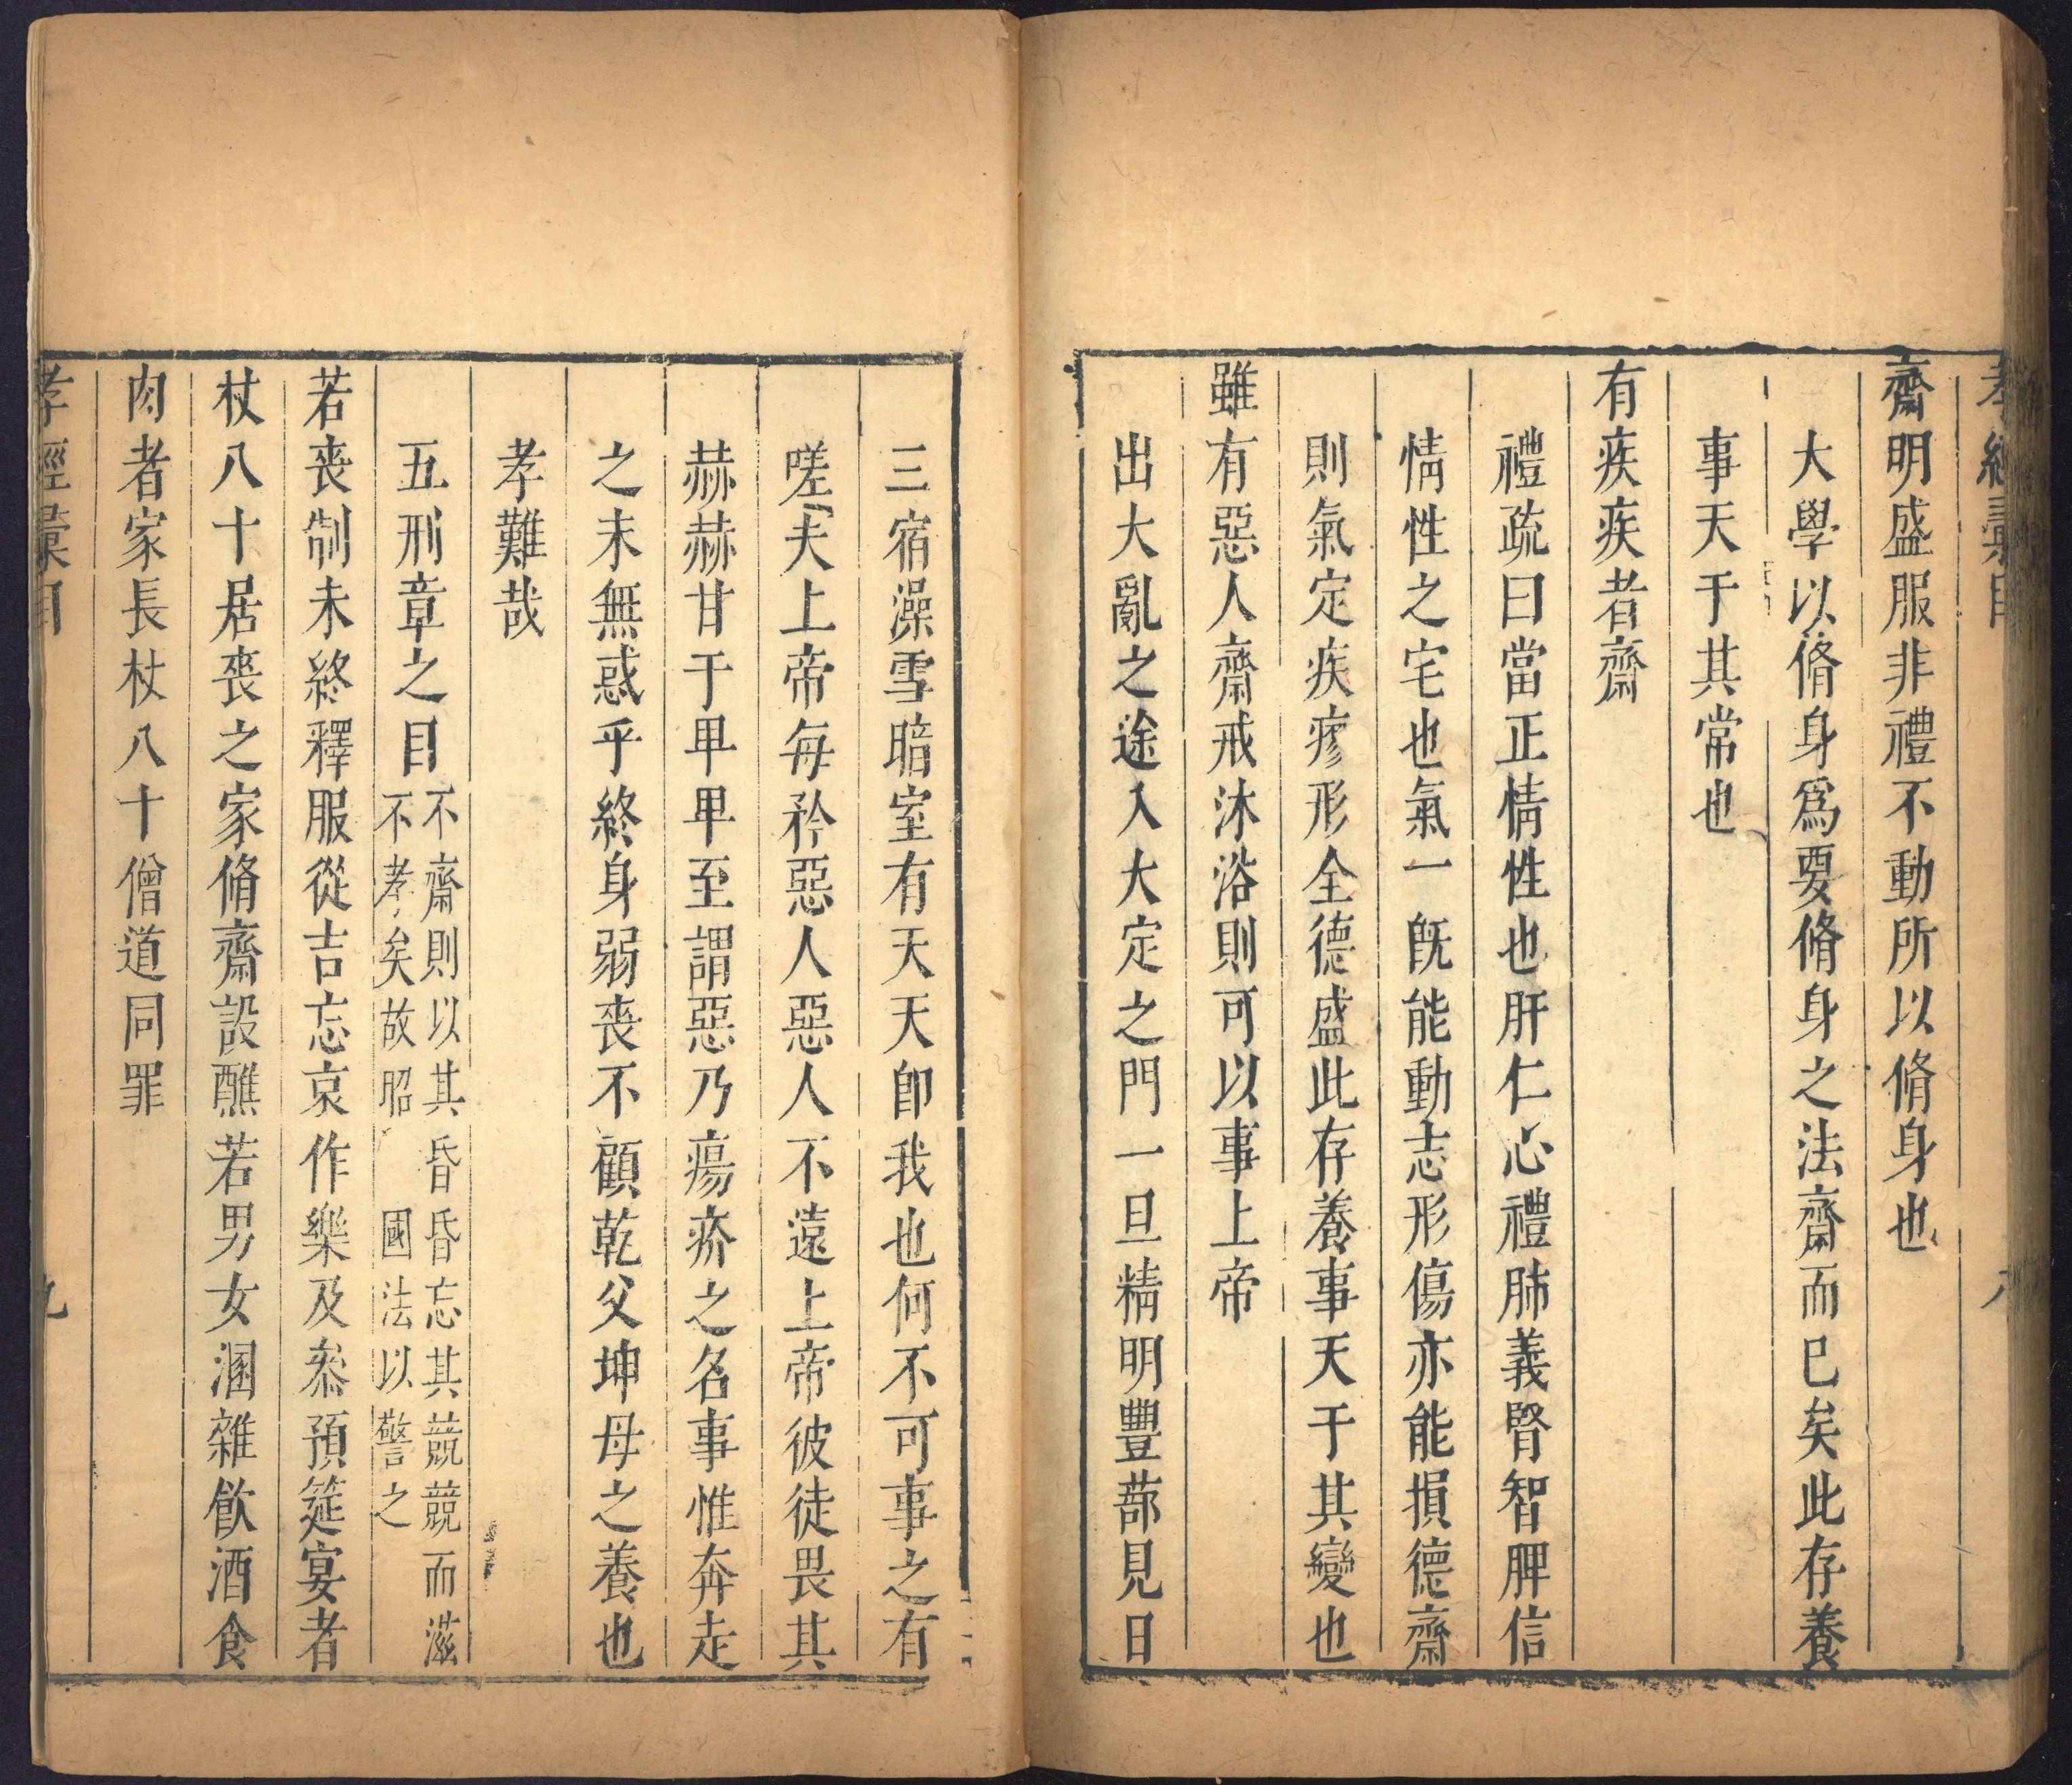 齋明盛服非禮不動所以脩身也
大學以脩身爲要脩身之法齋而已矣此存養
事天于其常也
有疾疾者齋
禮疏曰當正情性也肝仁心禮肺義腎智脾信
情性之宅也氣一旣能動志形傷亦能損德齋
則氣定疾疹形全德盛此存養事天于其變也
雖有惡人齋戒沐浴則可以事上帝
出大亂之途入大定之門一旦精明豐蔀見日
三宿澡雪暗室有天天卽我也何不可事之有
嗟夫上帝每矜惡人惡人不遠上帝彼徒畏其
赫赫甘于卑卑至謂惡乃瘍疥之名事惟奔走
之末無惑乎終身弱喪不顧乾父坤母之養也
孝難哉
五刑章之目
不齋則以其昏昏忘其競競而滋
不孝矣故昭 國法以警之
若喪制未終釋服從吉忘哀作樂及叅預筵宴者
杖八十居喪之家脩齋設醮若男女溷雜飮酒食
肉者家長杖八十僧道同罪
孝經彙目 九